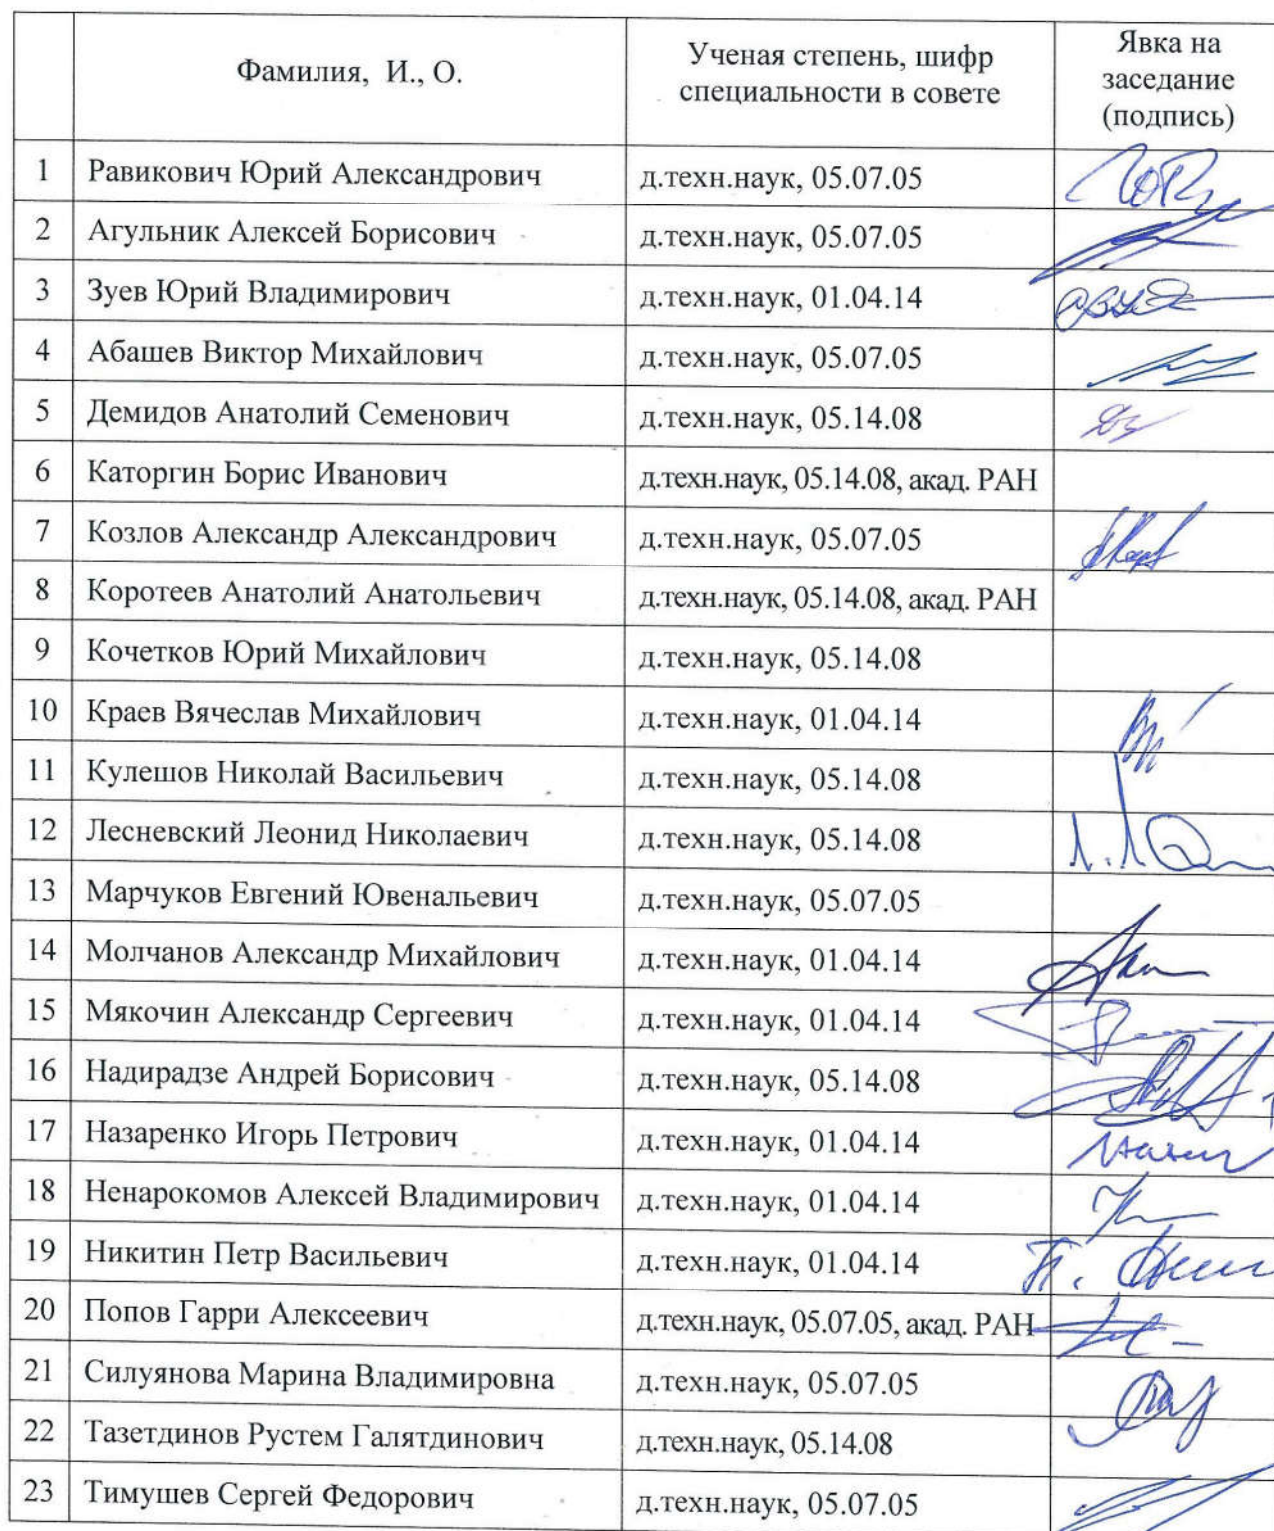 Фамилия, И., О.
Ученая степень, шифр
специальности в совете
Явка на
заседание
(подпись)
1 Равикович Юрий Александрович д.техн.наук, 05.07.05
2 Агульник Алексей Борисович д.техн.наук, 05.07.05
3 Зуев Юрий Владимирович д.техн.наук, 01.04.14
4 Абашев Виктор Михайлович д.техн.наук, 05.07.05
5 Демидов Анатолий Семенович д.техн.наук, 05.14.08
6 Каторгин Борис Иванович д.техн.наук, 05.14.08, акад. РАН
7 Козлов Александр Александрович д.техн.наук, 05.07.05
8 Коротеев Анатолий Анатольевич д.техн.наук, 05.14.08, акад. РАН
9 Кочетков Юрий Михайлович д.техн.наук, 05.14.08
10 Краев Вячеслав Михайлович д.техн.наук, 01.04.14
11 Кулешов Николай Васильевич д.техн.наук, 05.14.08
12 Лесневский Леонид Николаевич д.техн.наук, 05.14.08
13 Марчуков Евгений Ювенальевич д.техн.наук, 05.07.05
14 Молчанов Александр Михайлович д.техн.наук, 01.04.14
15 Мякочин Александр Сергеевич д.техн.наук, 01.04.14
16 Надирадзе Андрей Борисович д.техн.наук, 05.14.08
17 Назаренко Игорь Петрович д.техн.наук, 01.04.14
18 Ненарокомов Алексей Владимирович д.техн.наук, 01.04.14
19 Никитин Петр Васильевич д.техн.наук, 01.04.14
20 Попов Гарри Алексеевич д.техн.наук, 05.07.05, акад. РАН
21 Силуянова Марина Владимировна д.техн.наук, 05.07.05
22 Тазетдинов Рустем Галятдинович д.техн.наук, 05.14.08
23 Тимушев Сергей Федорович д.техн.наук, 05.07.05